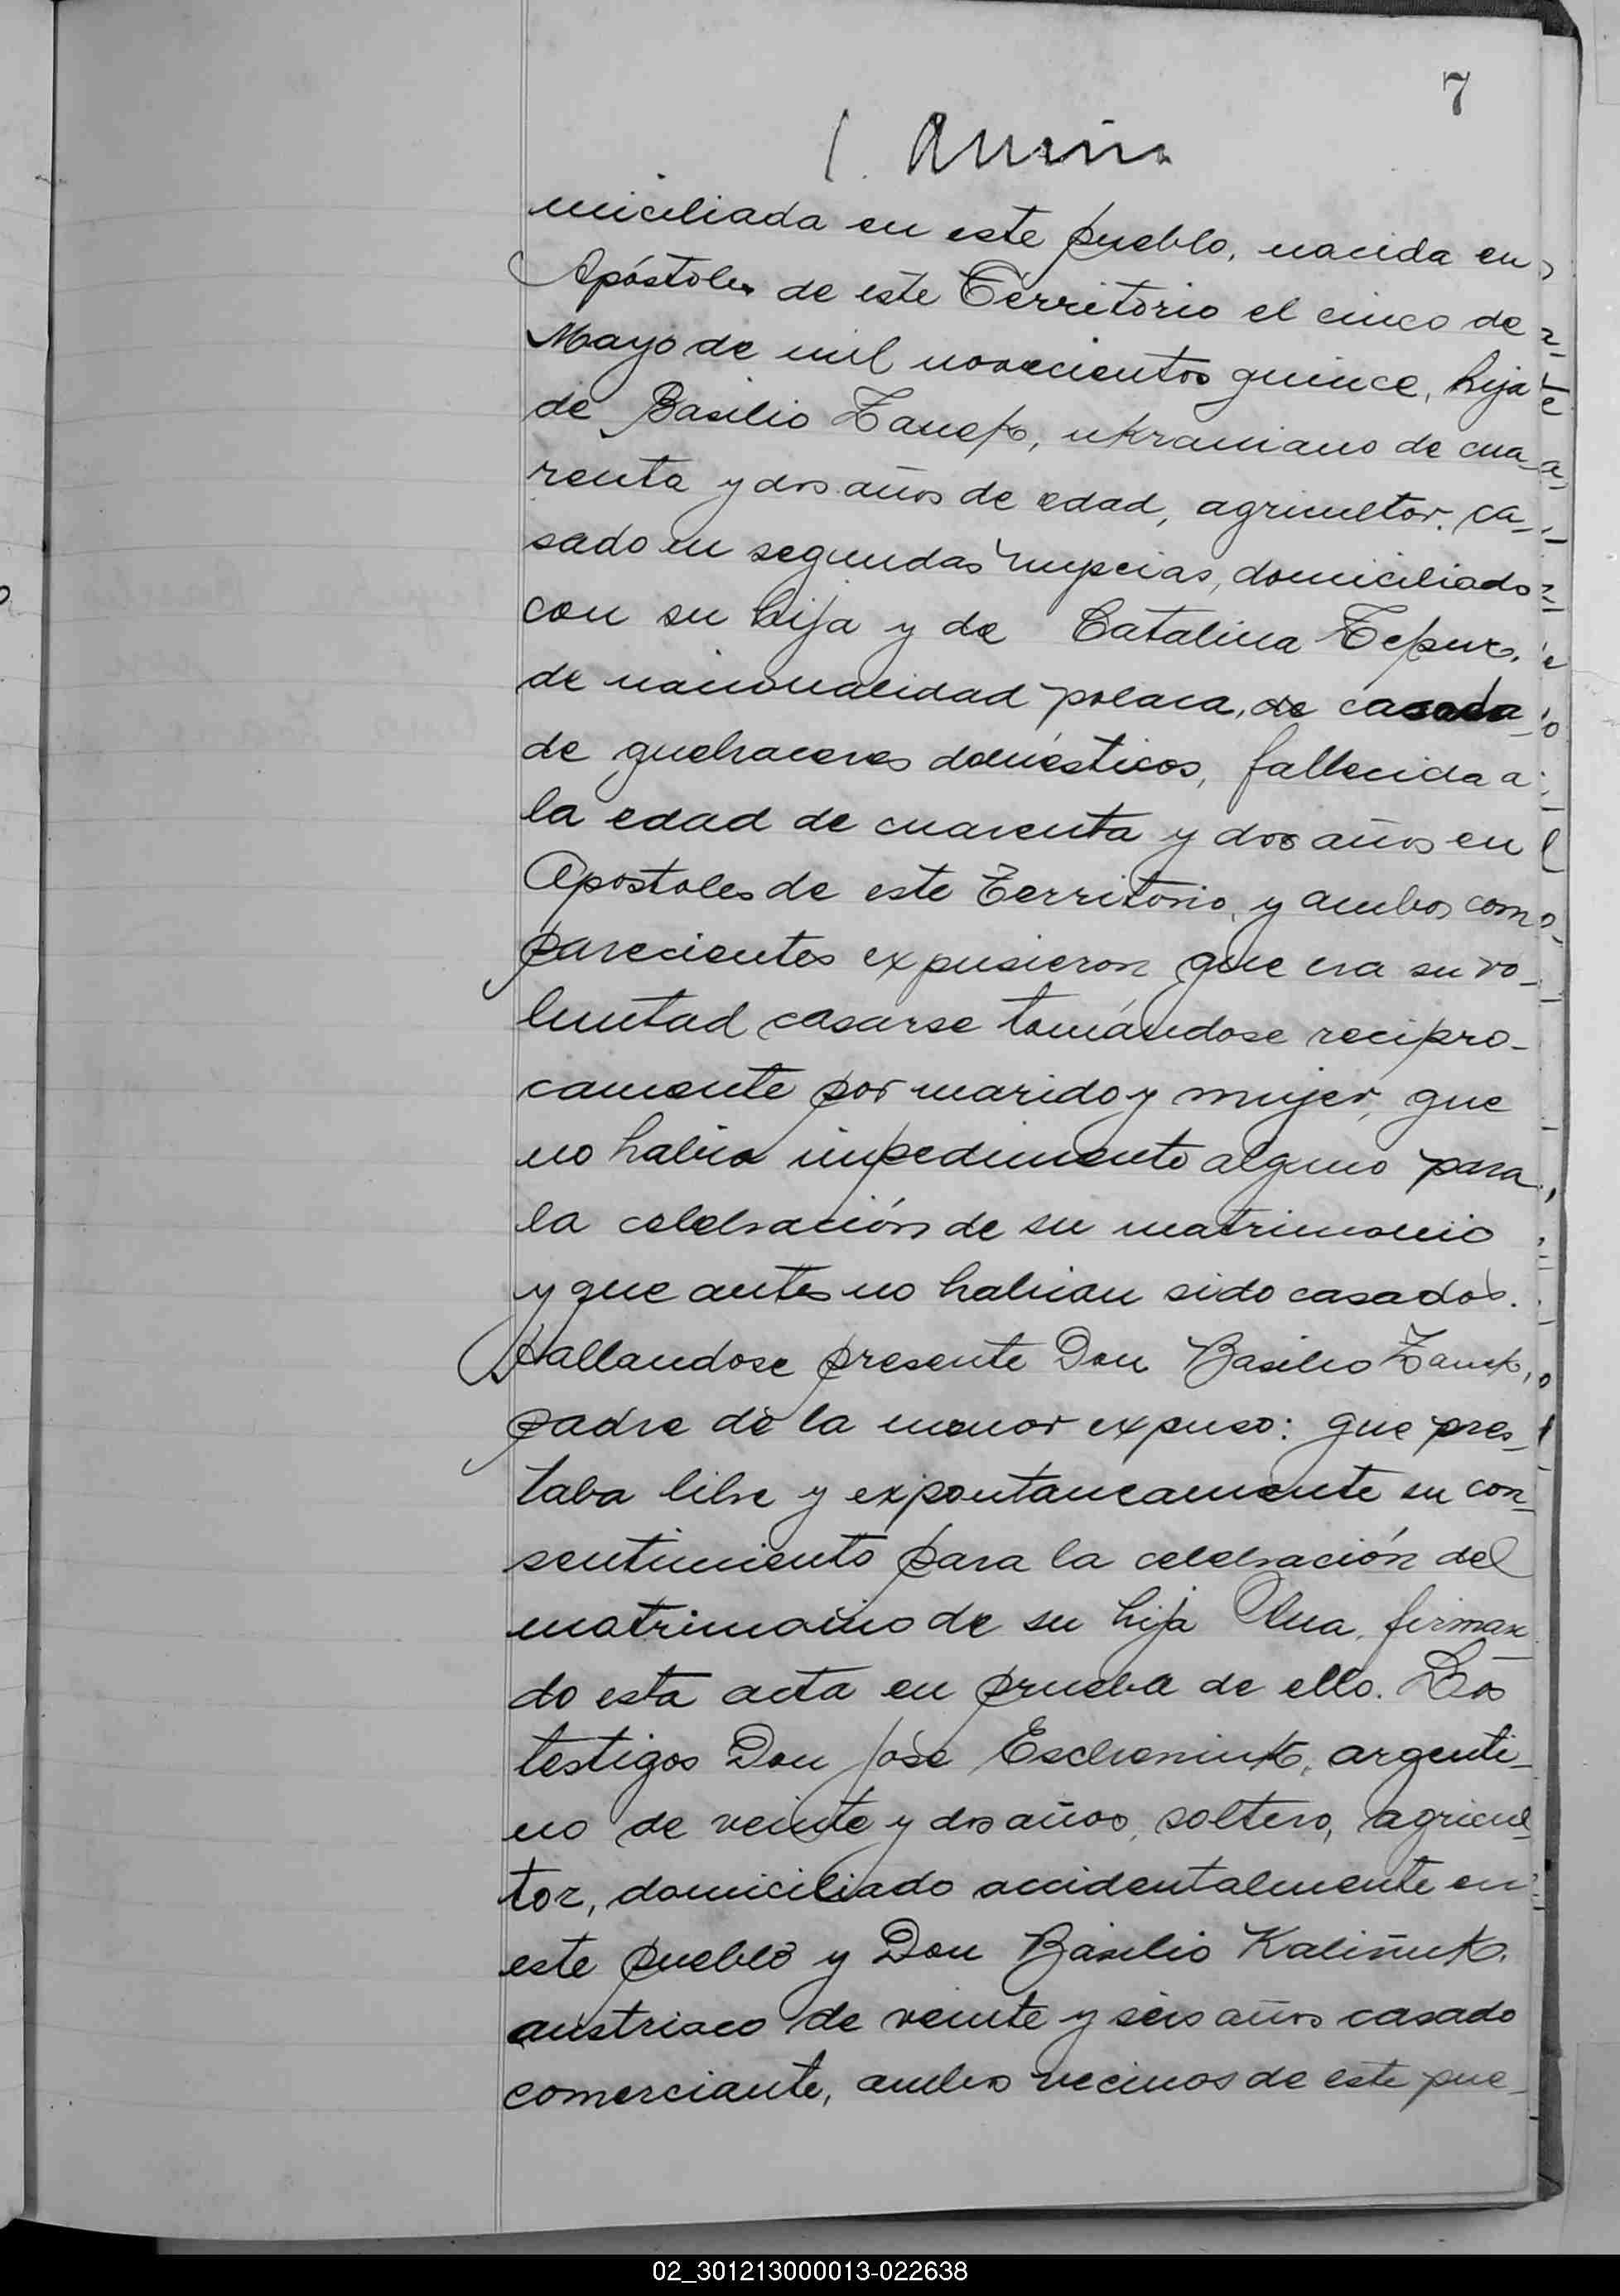 7
miciliada en este pueblo, nacida en
Apóstoles de este Territorio el cinco de
Mayo de mil novecientos quince, hija
de Basilio Zanek, ukraniano de cua-
renta y dos años de edad, agricultor, ca-
sado en segundas nupcias, domiciliado
con su hija y de Catalina
de nacionalidad polaca, de casada
de quehaceres domésticos, fallecida a
la edad de cuarenta y dos años en
Apostoles de este Territorio, y ambos com-
parecientes expusieron que era su vo-
luntad casarse tomándose recipro-
camente por marido y mujer, que
no habia impedimento alguno para
la celebración de su matrimonio
y que antes no habian sido casados.
Hallandose presente Don Basilio Zanek,
padre de la menor expuso: que pres-
taba libre y expontaneamente su con-
sentimiento para la celebración del
matrimonio de su hija Ana, firman-
do esta acta en prueba de ello. Los
testigos Don José argenti-
no de veinte y dos años, soltero, agricul-
tor, domiciliado accidentalmente en
este pueblo y Don Basilio Kaliñuk,
austriaco de veinte y seis años casado
comerciante, ambos vecinos de este pue-
02_301213000013-022638